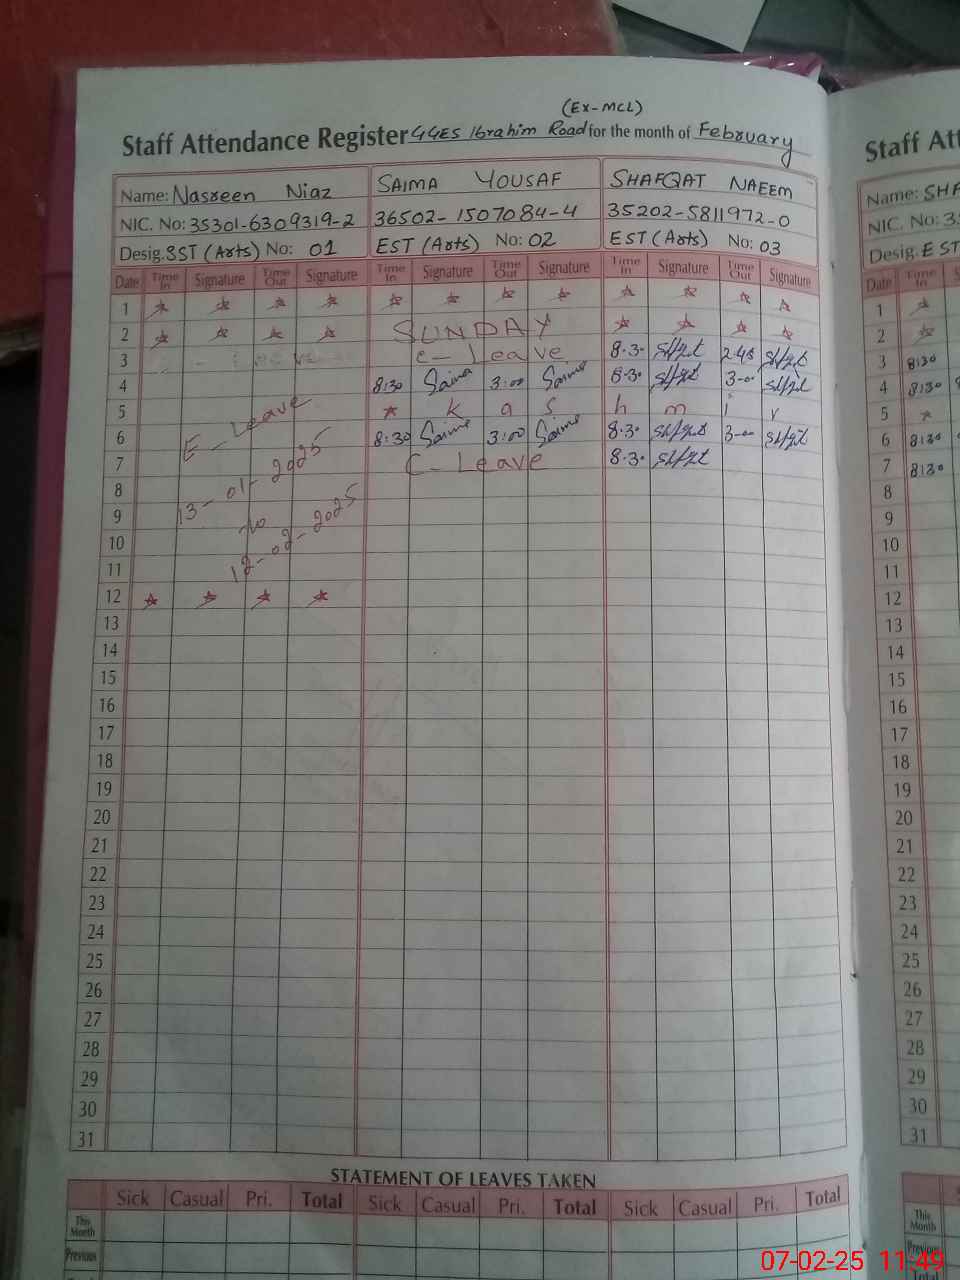 (Ex-MCL)
Staff Attendance Register GGES Ibrahim Road for the month of February
Name: Nasreen Niaz SAIMA YOUSAF SHAFQAT NAEEM
NIC. No: 35301-6309319-2 36502-1507084-4 35202-5811972-0
Desig. SST (Arts) No: 01 EST (Arts) No: 02 EST (Arts) No: 03
Date Time In Signature Time Out Signature Time In Signature Time Out Signature Time In Signature Time Out Signature
1
2 SUNDAY
3 C-Leave 8.30 2.45
4 8:30 Saima 3:00 Saima 8.30 3-00
5 K a s h m i r
6 E-Leave 8:30 Saima 3:00 Saima 8.30 3-00
7 13-01-2025 C-Leave 8.30
8 to
9 12-02-2025
10
11
12
13
14
15
16
17
18
19
20
21
22
23
24
25
26
27
28
29
30
31
STATEMENT OF LEAVES TAKEN
Sick Casual Pri. Total Sick Casual Pri. Total Sick Casual Pri. Total
This Month
Previous
Total
Staff Att
Name: SHA
NIC. No: 3
Desig. EST
Date Time In
1
2
3 8:30
4 8:30
5
6 8:30
7 8:30
8
9
10
11
12
13
14
15
16
17
18
19
20
21
22
23
24
25
26
27
28
29
30
31
This Month
Previous
Total
07-02-25 11:49